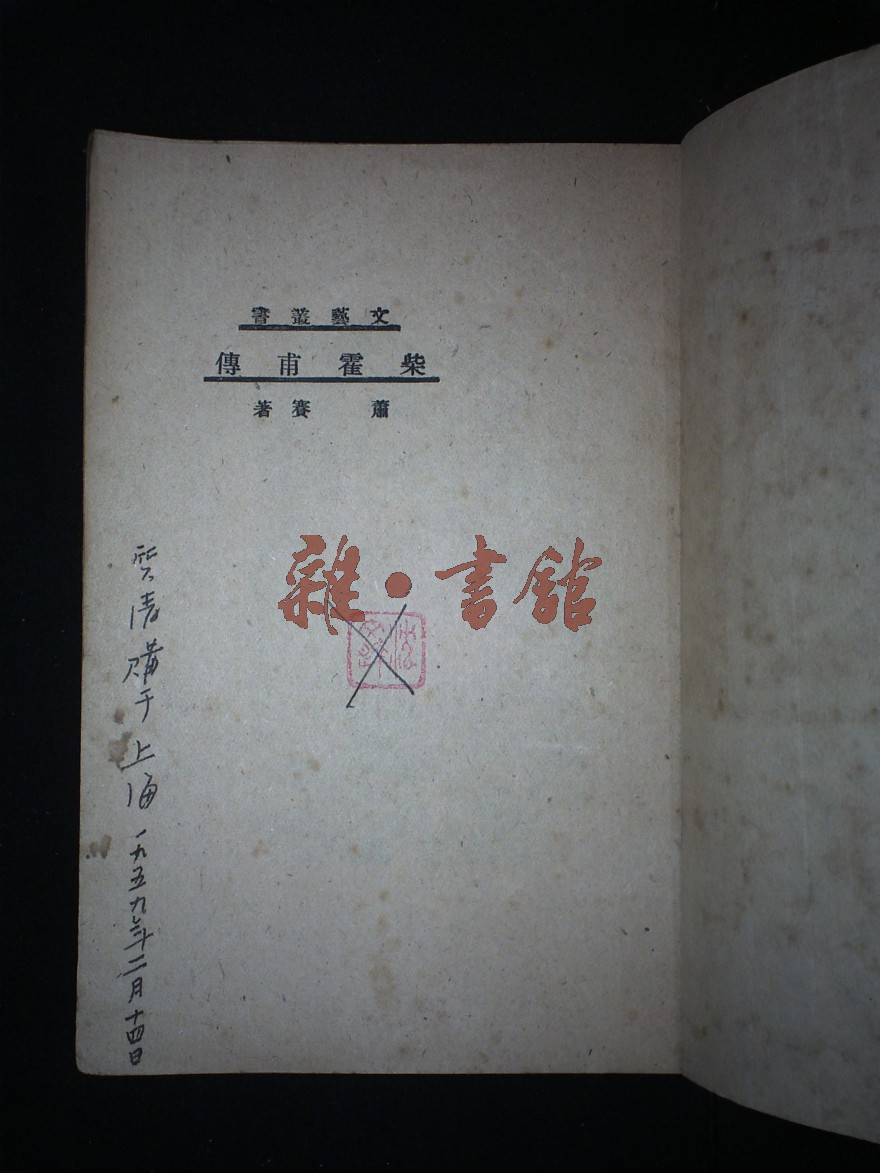 文藝叢書
柴霍甫傳
蕭賽著
雜·書館
清購于上海 一九五九年二月十四日